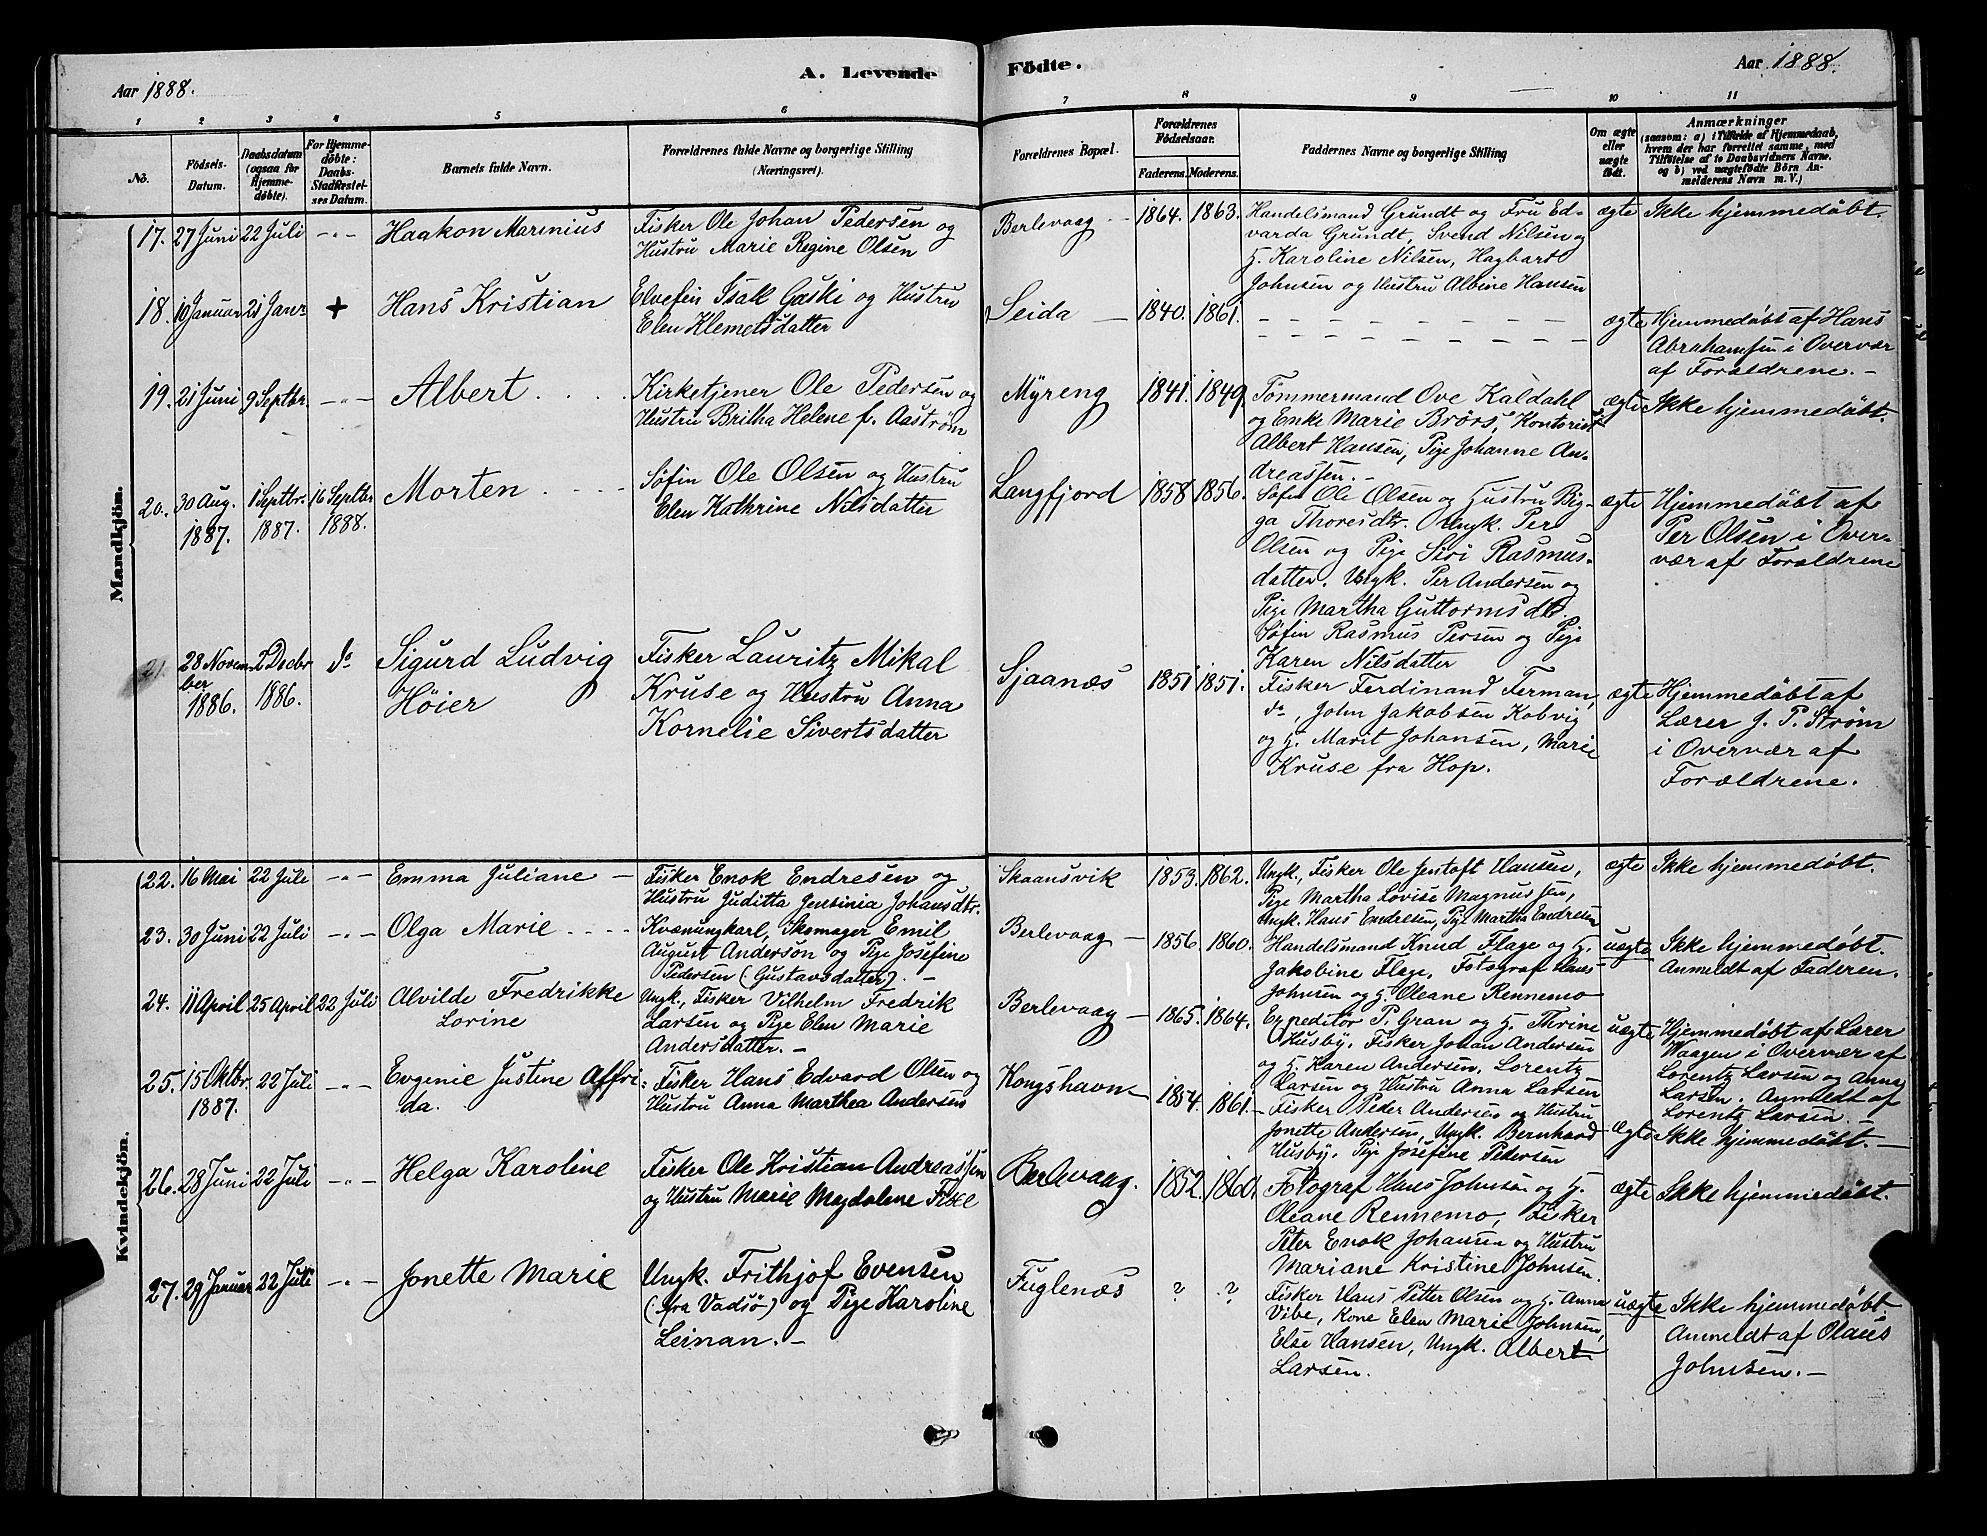 Aar 1888.
A. Levende Födte.
Aar 1888.
1 2 3 4 5 6 7 8 9 10 11
No.
Födsels-Datum.
Daabsdatum (ogsaa for Hjemme-döbte).
For Hjemme-döbte: Daabs-Stadfæstel-ses Datum.
Barnets fulde Navn.
Forældrenes fulde Navne og borgerlige Stilling (Næringsvei).
Forældrenes Bopæl.
Forældrenes Födselsaar.
Faderens. Moderens.
Faddernes Navne og borgerlige Stilling
Om ægte eller uægte födt.
Anmærkninger
(saasom: a) i Tilfælde af Hjemmedaab,
hvem der har forrettet samme, med
Tilföielse af to Daabsvidners Navne.
og b) ved uægtefödte Börn An-
melderens Navn m. V.)
Mandkjön.
17. 27 Juni 22 Juli -„- Haakon Marinius
Fisker Ole Johan Pedersen og
Hustru Marie Regine Olsen
Berlevaag - 1864. 1863.
Handelsmand Grundt og Fru Ed-
varda Grundt, Svend Nilsen og
H. Karoline Nilsen, Hagbart
Johnsen og Hustru Albine Hansen
ægte Ikke hjemmedøbt.
18. 10 Januar 21 Janr + Hans Kristian
Elvefin Isak Gaski og Hustru
Elen Klemetsdatter
Seida - 1840. 1861.
ægte Hjemmedøbt af Hans
Abrahamsen i Overvær
af Forældrene. -
19. 21 Juni 9 Septbr. -„- Albert
Kirketjener Ole Pedersen og
Hustru Britha Helene f. Aaström
Myreng 1841. 1849.
Tømmermand Ove Kaldahl
og Enke Marie Brörs, Kontorist
Albert Hansen, Pige Johanne An-
dreassen. -
ægte Ikke hjemmedøbt.
20. 30 Aug. 1887. 1 Septbr. 1887. 16 Septbr 1888. Morten
Søfin Ole Olsen og Hustru
Elen Kathrine Nilsdatter
Langfjord 1858. 1856.
Søfin Ole Olsen og Hustru Big-
ga Thoresdtr. Ungk. Per
Olsen og Pige Siri Rasmus-
datter. Ungk. Per Andersen og
Pige Martha Guttormsdtr.
Søfin Rasmus Persen og Pige
Karen Nilsdatter
ægte Hjemmedøbt af
Per Olsen i Over-
vær af Forældrene
21. 28 Novem-ber 1886. 2 Decbr 1886. do Sigurd Ludvig
Høier
Fisker Lauritz Mikal
Kruse og Hustru Anna
Kornelie Sivertsdatter
Sjaanæs 1851 1851.
Fisker Ferdinand Ferman,
do, John Jakobsen Kobvig
og H. Marit Johansen, Marie
Kruse fra Hop.
ægte Hjemmedøbt af
Lærer J. P. Strøm
i Overvær af
Forældrene.
Kvindekjön.
22. 16 Mai 22 Juli -„- Emma Juliane -
Fisker Enok Endresen og
Hustru Juditta Jensinia Johansdtr.
Skaansvik 1853. 1862.
Ungk., Fisker Ole Jentoft Hansen,
Pige Martha Lovise Magnussen,
Ungk. Hans Endresen, Pige Martha Endresen
ægte Ikke hjemmedøbt.
23. 30 Juni 22 Juli -„- Olga Marie
Kvænungkarl, Skomager Emil
August Anderson og Pige Josefine
Pedersen (Gustavsdatter). -
Berlevaag - 1856. 1860.
Handelsmand Knud Flage og H.
Jakobine Flage, Fotograf Hans
Johnsen og H. Oleane Rennemo
uægte Ikke hjemmedøbt.
Anmeldt af Faderen.
24. 11 April 25 April 22 Juli Alvilde Fredrikke
Lorine
Ungk., Fisker Vilhelm Fredrik
Larsen og Pige Elen Marie
Andersdatter. -
Berlevaag - 1865. 1864.
Expeditör P. Gran og H. Thrine
Husby, Fisker Johan Andersen
og H. Karen Andersen, Lorentz
Larsen og Hustru Anna Larsen
uægte Hjemmedøbt af Lærer
Waagen i Overvær af
Lorentz Larsen og Anna
Larsen. Anmeldt af
Lorentz Larsen.
25. 15 Oktbr. 1887. 22 Juli -„- Evgenie Justine Affri-
da.
Fisker Hans Edvard Olsen og
Hustru Anna Marthea Andersen
Kongshavn 1854. 1861.
Fisker Peder Andersen og Hustru
Jonette Andersen, Ungk. Bernhard
Husby, Pige Josefine Pedersen
ægte Ikke hjemmedøbt. -
26. 28 Juni 22 Juli -„- Helga Karoline
Fisker Ole Kristian Andreassen
og Hustru Marie Magdalene Fixe
Berlevaag. 1852. 1860.
Fotograf Hans Johnsen og H.
Oleane Rennemo, Fisker
Peter Enok Johansen og Hustru
Mariane Kristine Johnsen.
ægte Ikke hjemmedøbt.
27. 29 Januar 22 Juli -„- Jonette Marie
Ungk. Frithjof Evensen
(fra Vadsø) og Pige Karoline
Leinan. -
Fuglenæs ? ?
Fisker Hans Petter Olsen og H. Anna
Vibe, Kone Elen Marie Johnsen,
Else Hansen, Ungk. Albert
Larsen.
uægte Ikke hjemmedøbt.
Anmeldt af Olaus
Johnsen. -